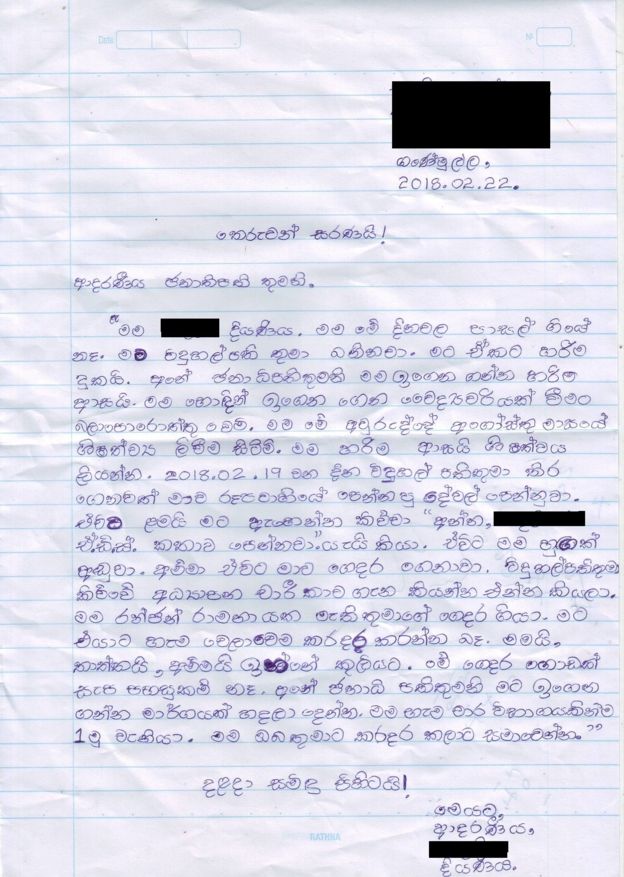 Date
No
ගණේමුල්ල,
2018.02.22.
තෙරුවන් සරණයි!
ආදරණීය ජනාතිපති තුමනි.
"මම දියණිය. මම මේ දිනවල පාසල් ගියේ
නෑ. මව විදුහල්පති තුමා බනිනවා. මට ඒකට හරිම
දුකයි. අනේ ජනාධිපතිතුමනි මම ඉගෙන ගන්න හරිම
ආසයි. මම හොදින් ඉගෙන ගෙන වෛද්‍යවරියක් වීමට
බලාපොරොත්තු වෙමි. මම මේ අවුරුද්දේ අගෝස්තු මාසයේ
ශිෂත්ව්‍ය ලිවීම සිටිමි. මම හරිම ආසයි ශිෂත්වය
ලියන්න. 2018.02.19 වන දින විදුහල් පතිතුමා තිර
ගෙනවත් මාව රූපවාහියේ පෙන්න පු දේවල් පෙන්නුවා.
ඒවිට ළමයි මට ඇහෙන්න කිව්වා "අන්න,
ඒ.ඩ්.ස්. කතාව පෙන්නවා."යැයි කියා. එවිට මම හුගක්
අඬුවා. අම්මා එවිට මාව ගෙදර ගෙනාවා. විදුහල්පතිතුමා
කිව්වේ අධ්‍යාපන චාරිකාව ගැන කියන්න එන්න කියලා.
මම රන්ජන් රාමනායක මැතිතුමාගේ ගෙදර ගියා. මට
එයාට හැම වෙලාවෙම කරදර කරන්න බෑ. මමයි,
තාත්තයි, අම්මයි ඉන්නේ කුලියට. මේ ගෙදර හොඩක්
සැප පහසුකම් නෑ. අනේ ජනාධි පතිතුමනි මට ඉගෙන
ගන්න මාර්ගයක් හදලා දෙන්න. මම හැම වාර විභාගයකින්ම
1මු වැනියා. මම ඔබතුමාට කරදර කලාට සමාවෙන්න."
දළදා සමිඳු පිහිටයි!
මෙයට,
ආදරණීය,
දියණිය.
RATHNA